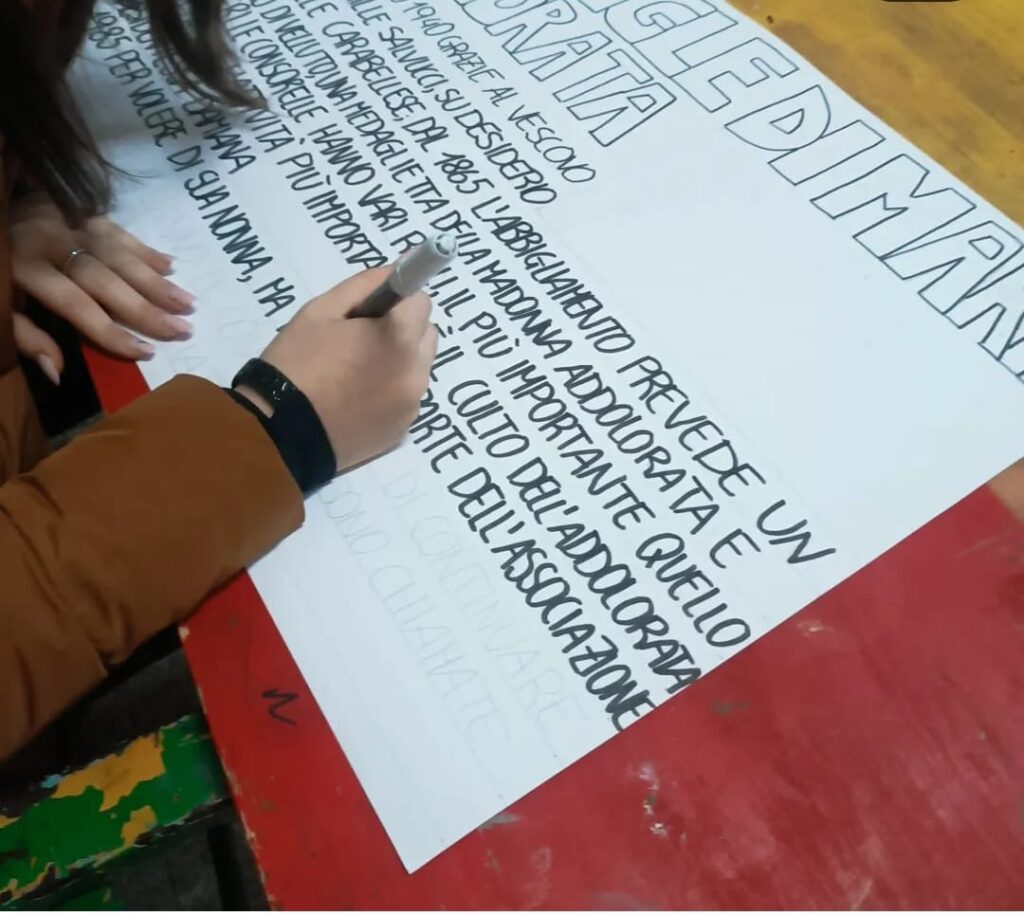 GLE DI MA
ORATA
1940 GRAZIE AL VESCOVO
SALVUCCI, SU DESIDERIO
CARABELLESE. DAL 1865 L'ABBIGLIAMENTO PREVEDE UN
DI VELLUTO, UNA MEDAGLIETTA DELLA MADONNA ADDOLORATA E
CONSORELLE HANNO VARI IL PIÙ IMPORTANTE QUELLO
PIÙ IMPORTA È IL CULTO DELL'ADDOLORATA
PARTE DELL'ASSOCIAZIONE
1985 PER VOLERE DI SUA NONNA, MA DI CONTINUARE
SONO CHIAMATE